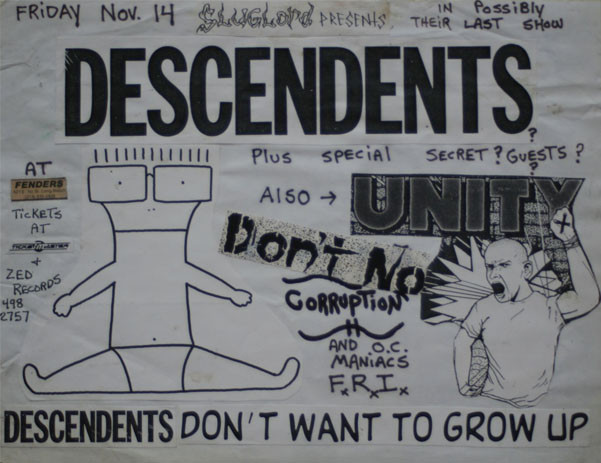 FRIDAY NOV. 14
SLUGLORD PRESENTS
IN POSSIBLY
THEIR LAST SHOW
DESCENDENTS
?
PLUS SPECIAL SECRET? GUESTS?
?
AT
FENDERS
TICKETS
AT
TICKETMASTER
+
ZED
RECORDS
498
2757
ALSO →
UNITY
X
Don't No
CORRUPTION
AND O.C.
MANIACS
F.R.I.
DESCENDENTS DON'T WANT TO GROW UP